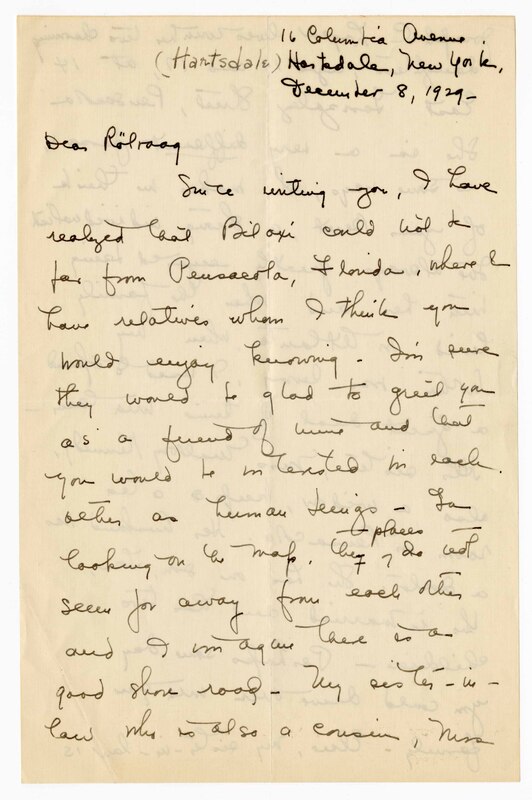 16 Columbia Avenue
(Hartsdale) Hartsdale, New York,
December 8, 1929-
Dear Rölvaag
Since writing you, I have
realized that Biloxi could not be
far from Pensacola, Florida, where I
have relatives whom I think you
would enjoy knowing - I'm sure
they would be glad to greet you
as a friend of mine and that
you would be interested in each
other as human beings - In
looking on the map, the places do not
seem far away from each other
and I imagine there is a
good shore road - My sister-in-
law who is also a cousin, Miss